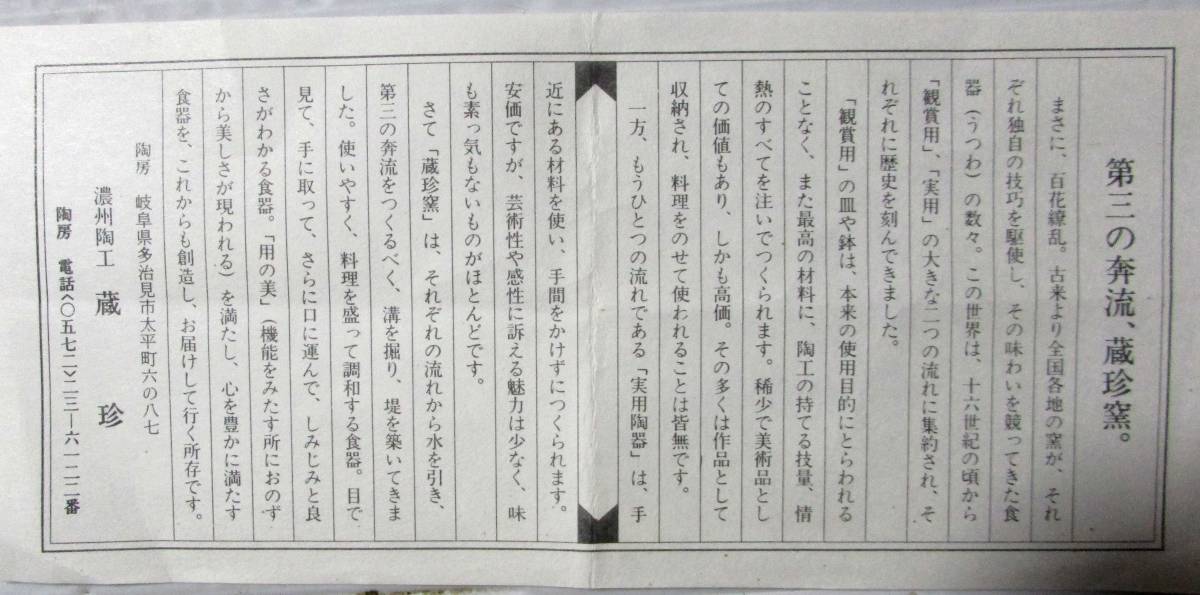 第三の奔流、蔵珍窯。
まさに、百花繚乱。古来より全国各地の窯が、それ
ぞれ独自の技巧を駆使し、その味わいを競ってきた食
器（うつわ）の数々。この世界は、十六世紀の頃から
「観賞用」、「実用」の大きな二つの流れに集約され、そ
れぞれに歴史を刻んできました。
「観賞用」の皿や鉢は、本来の使用目的にとらわれる
ことなく、また最高の材料に、陶工の持てる技量、情
熱のすべてを注いでつくられます。稀少で美術品とし
ての価値もあり、しかも高価。その多くは作品として
収納され、料理をのせて使われることは皆無です。
一方、もうひとつの流れである「実用陶器」は、手
近にある材料を使い、手間をかけずにつくられます。
安価ですが、芸術性や感性に訴える魅力は少なく、味
も素っ気もないものがほとんどです。
さて「蔵珍窯」は、それぞれの流れから水を引き、
第三の奔流をつくるべく、溝を掘り、堤を築いてきま
した。使いやすく、料理を盛って調和する食器。目で
見て、手に取って、さらに口に運んで、しみじみと良
さがわかる食器。「用の美」（機能をみたす所におのず
から美しさが現われる）を満たし、心を豊かに満たす
食器を、これからも創造し、お届けして行く所存です。
陶房 岐阜県多治見市太平町六の八七
濃州陶工 蔵珍
陶房 電話〈〇五七二〉二三―六一二二番